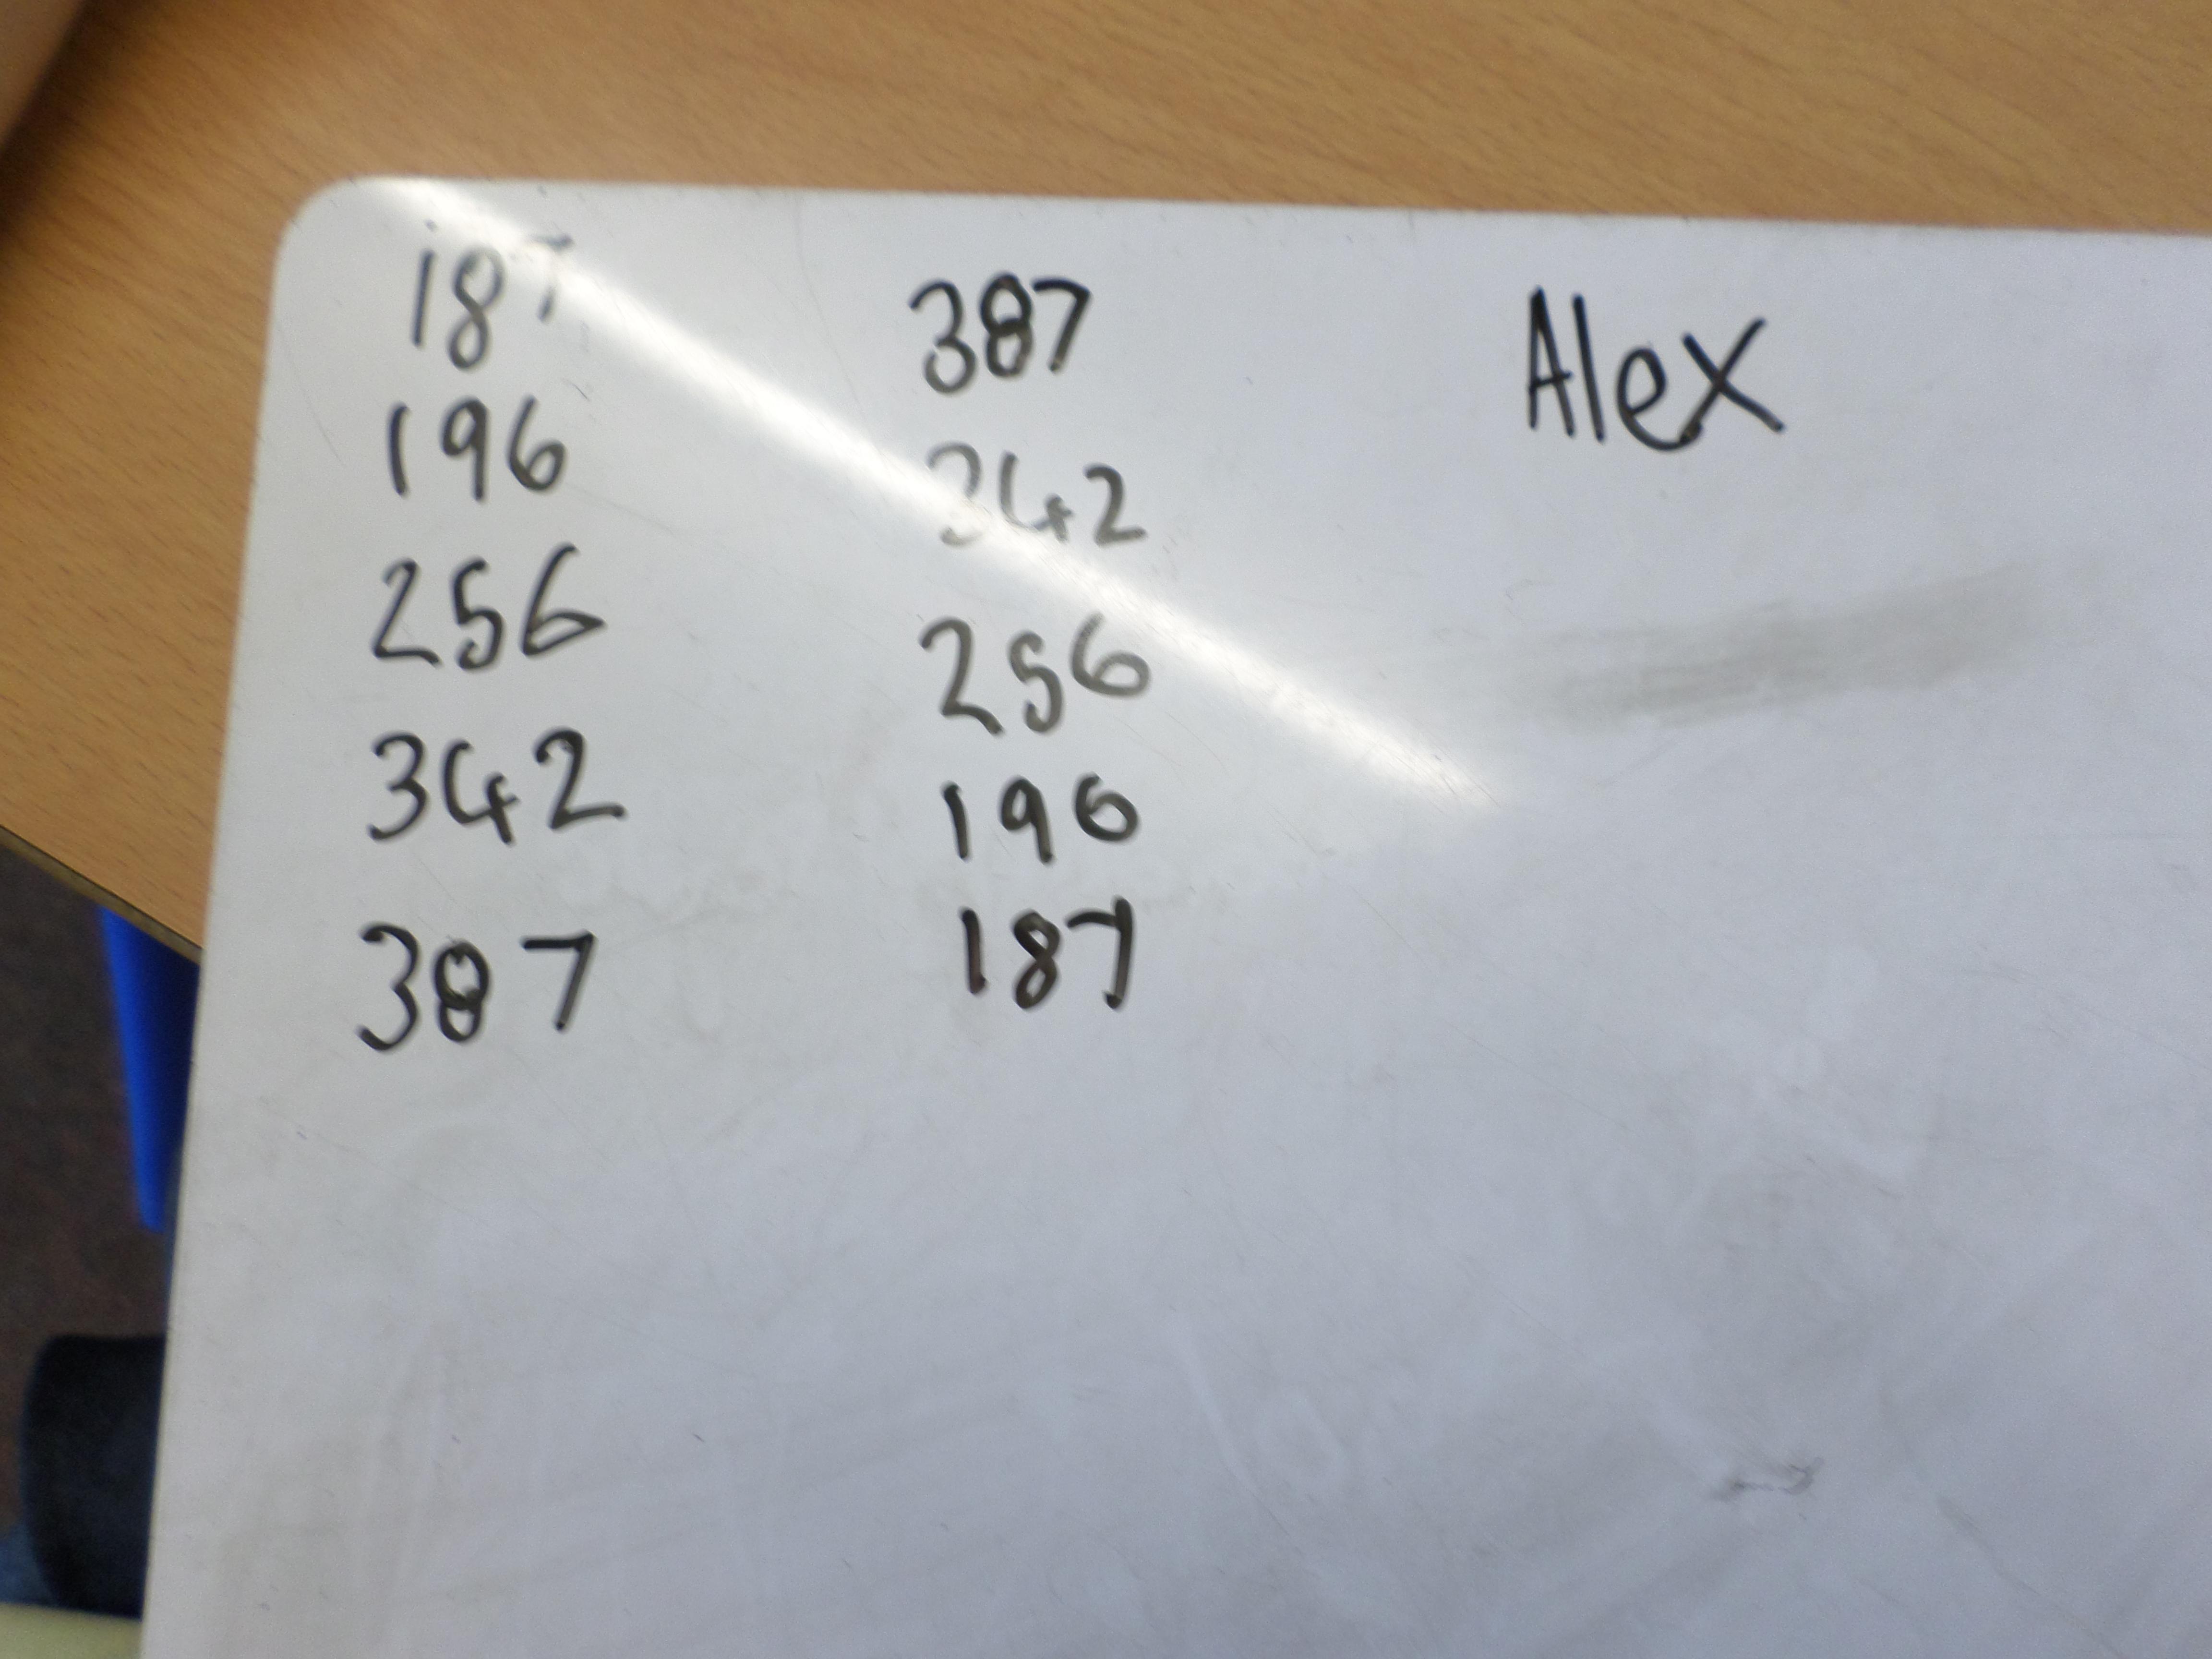 187 387 Alex
196 342
256 256
342 196
387 187